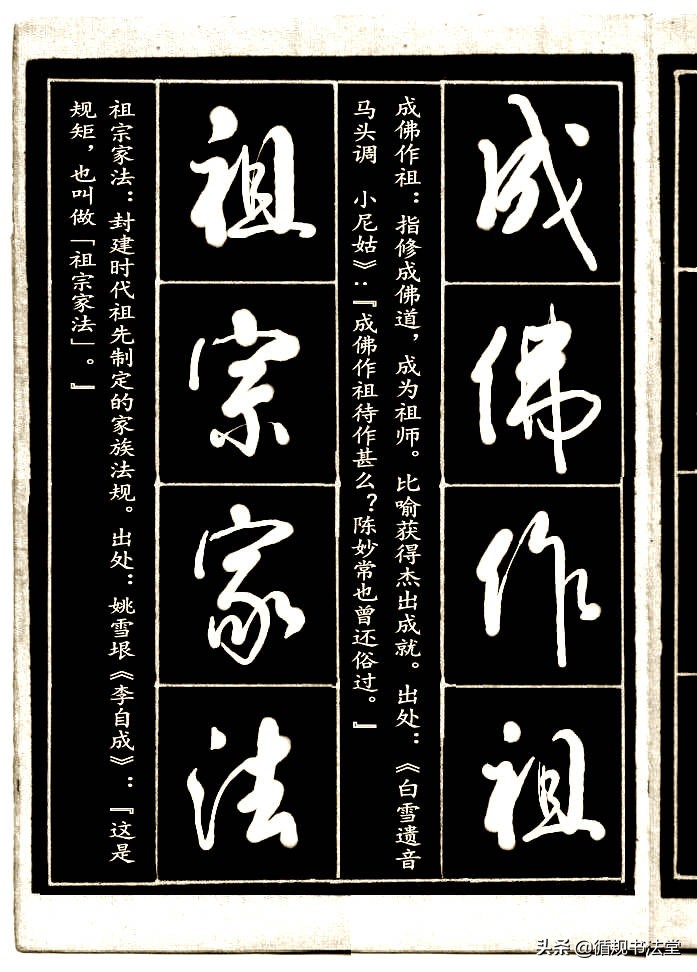 成佛作祖
成佛作祖：指修成佛道，成为祖师。比喻获得杰出成就。出处：《白雪遗音
马头调 小尼姑》：『成佛作祖待作甚么？陈妙常也曾还俗过。』
祖宗家法
祖宗家法：封建时代祖先制定的家族法规。出处：姚雪垠《李自成》：『这是
规矩，也叫做「祖宗家法」。』
头条 @循规书法堂